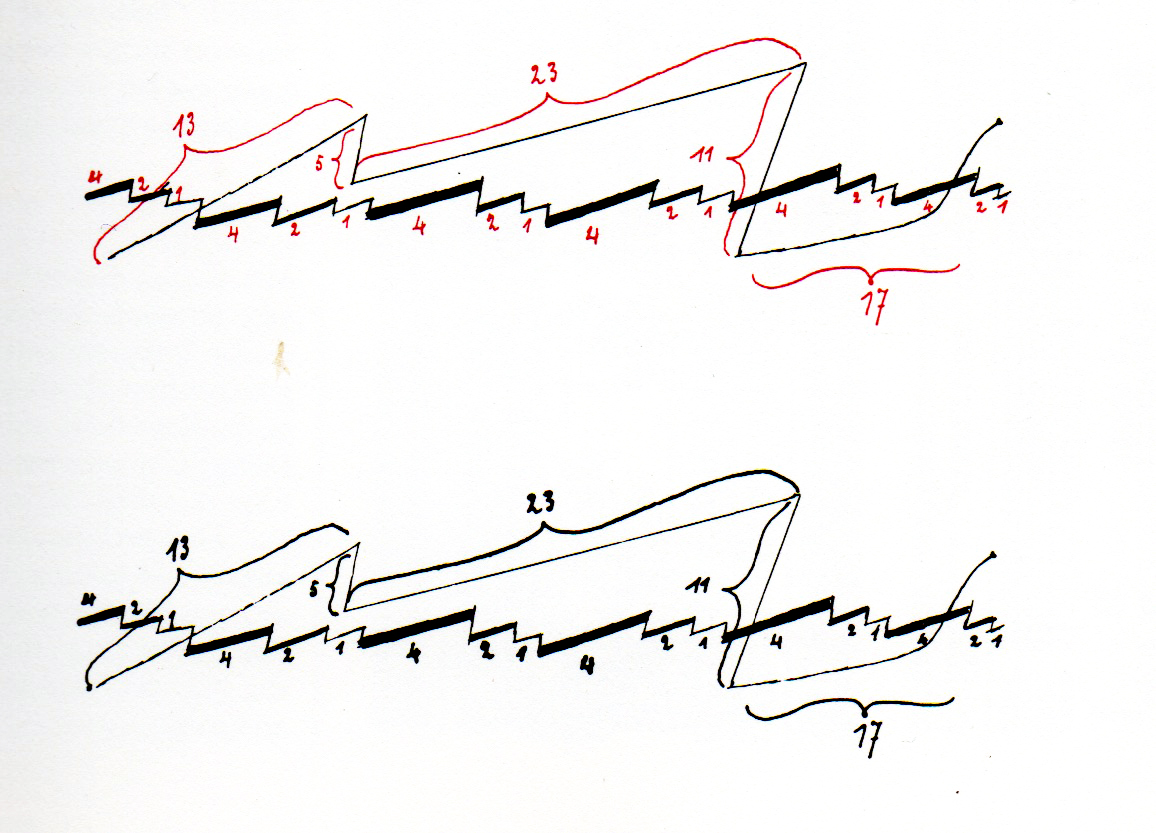 23
13
5
11
4 2 1
4 2 1 4 2 1 4 2 1 4 2 1 4 2 1
17
23
13
5
11
4 2 1
4 2 1 4 2 1 4 2 1 4 2 1 4 2 1
17